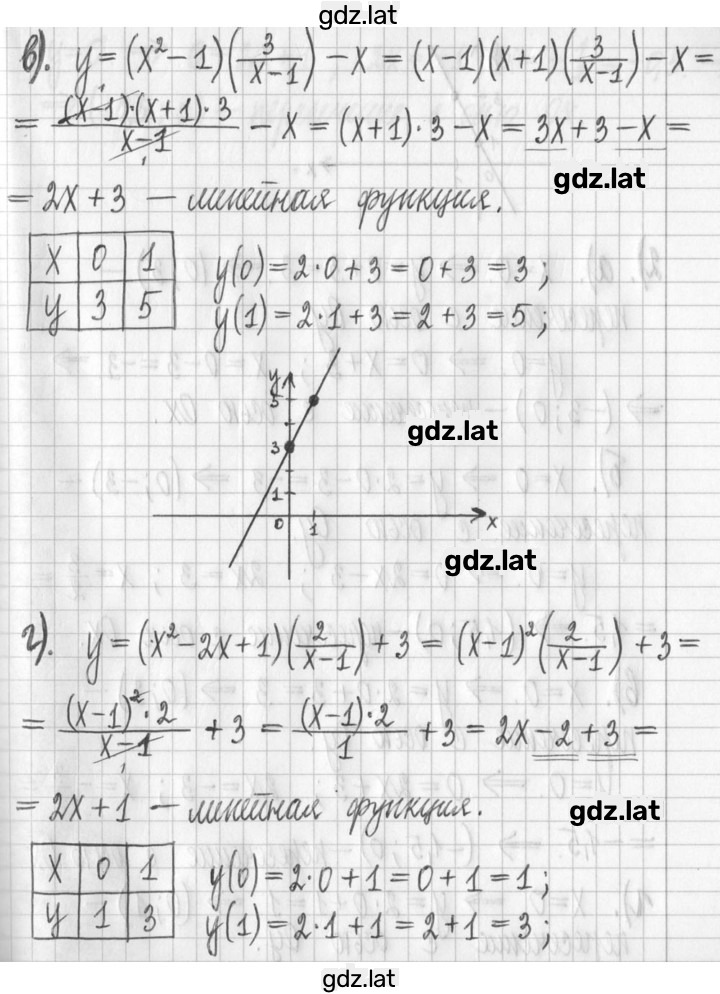 gdz.lat
в). y = (x² – 1)(3/(x–1)) – x = (x–1)(x+1)(3/(x–1)) – x =
= ((x–1)·(x+1)·3)/(x–1) – x = (x+1)·3 – x = 3x + 3 – x =
gdz.lat
= 2x + 3 — линейная функция.
x 0 1 y(0) = 2·0 + 3 = 0 + 3 = 3;
y 3 5 y(1) = 2·1 + 3 = 2 + 3 = 5;
y
5
gdz.lat
3
1
0 1 x
gdz.lat
г). y = (x² – 2x + 1)(2/(x–1)) + 3 = (x–1)²(2/(x–1)) + 3 =
= ((x–1)²·2)/(x–1) + 3 = ((x–1)·2)/1 + 3 = 2x – 2 + 3 =
= 2x + 1 — линейная функция.
gdz.lat
x 0 1 y(0) = 2·0 + 1 = 0 + 1 = 1;
y 1 3 y(1) = 2·1 + 1 = 2 + 1 = 3;
gdz.lat